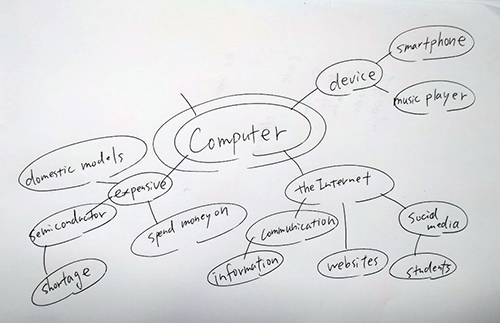 smartphone
device
music player
Computer
domestic models
expensive
the Internet
semiconductor
spend money on
communication
social
media
shortage
information
websites
students